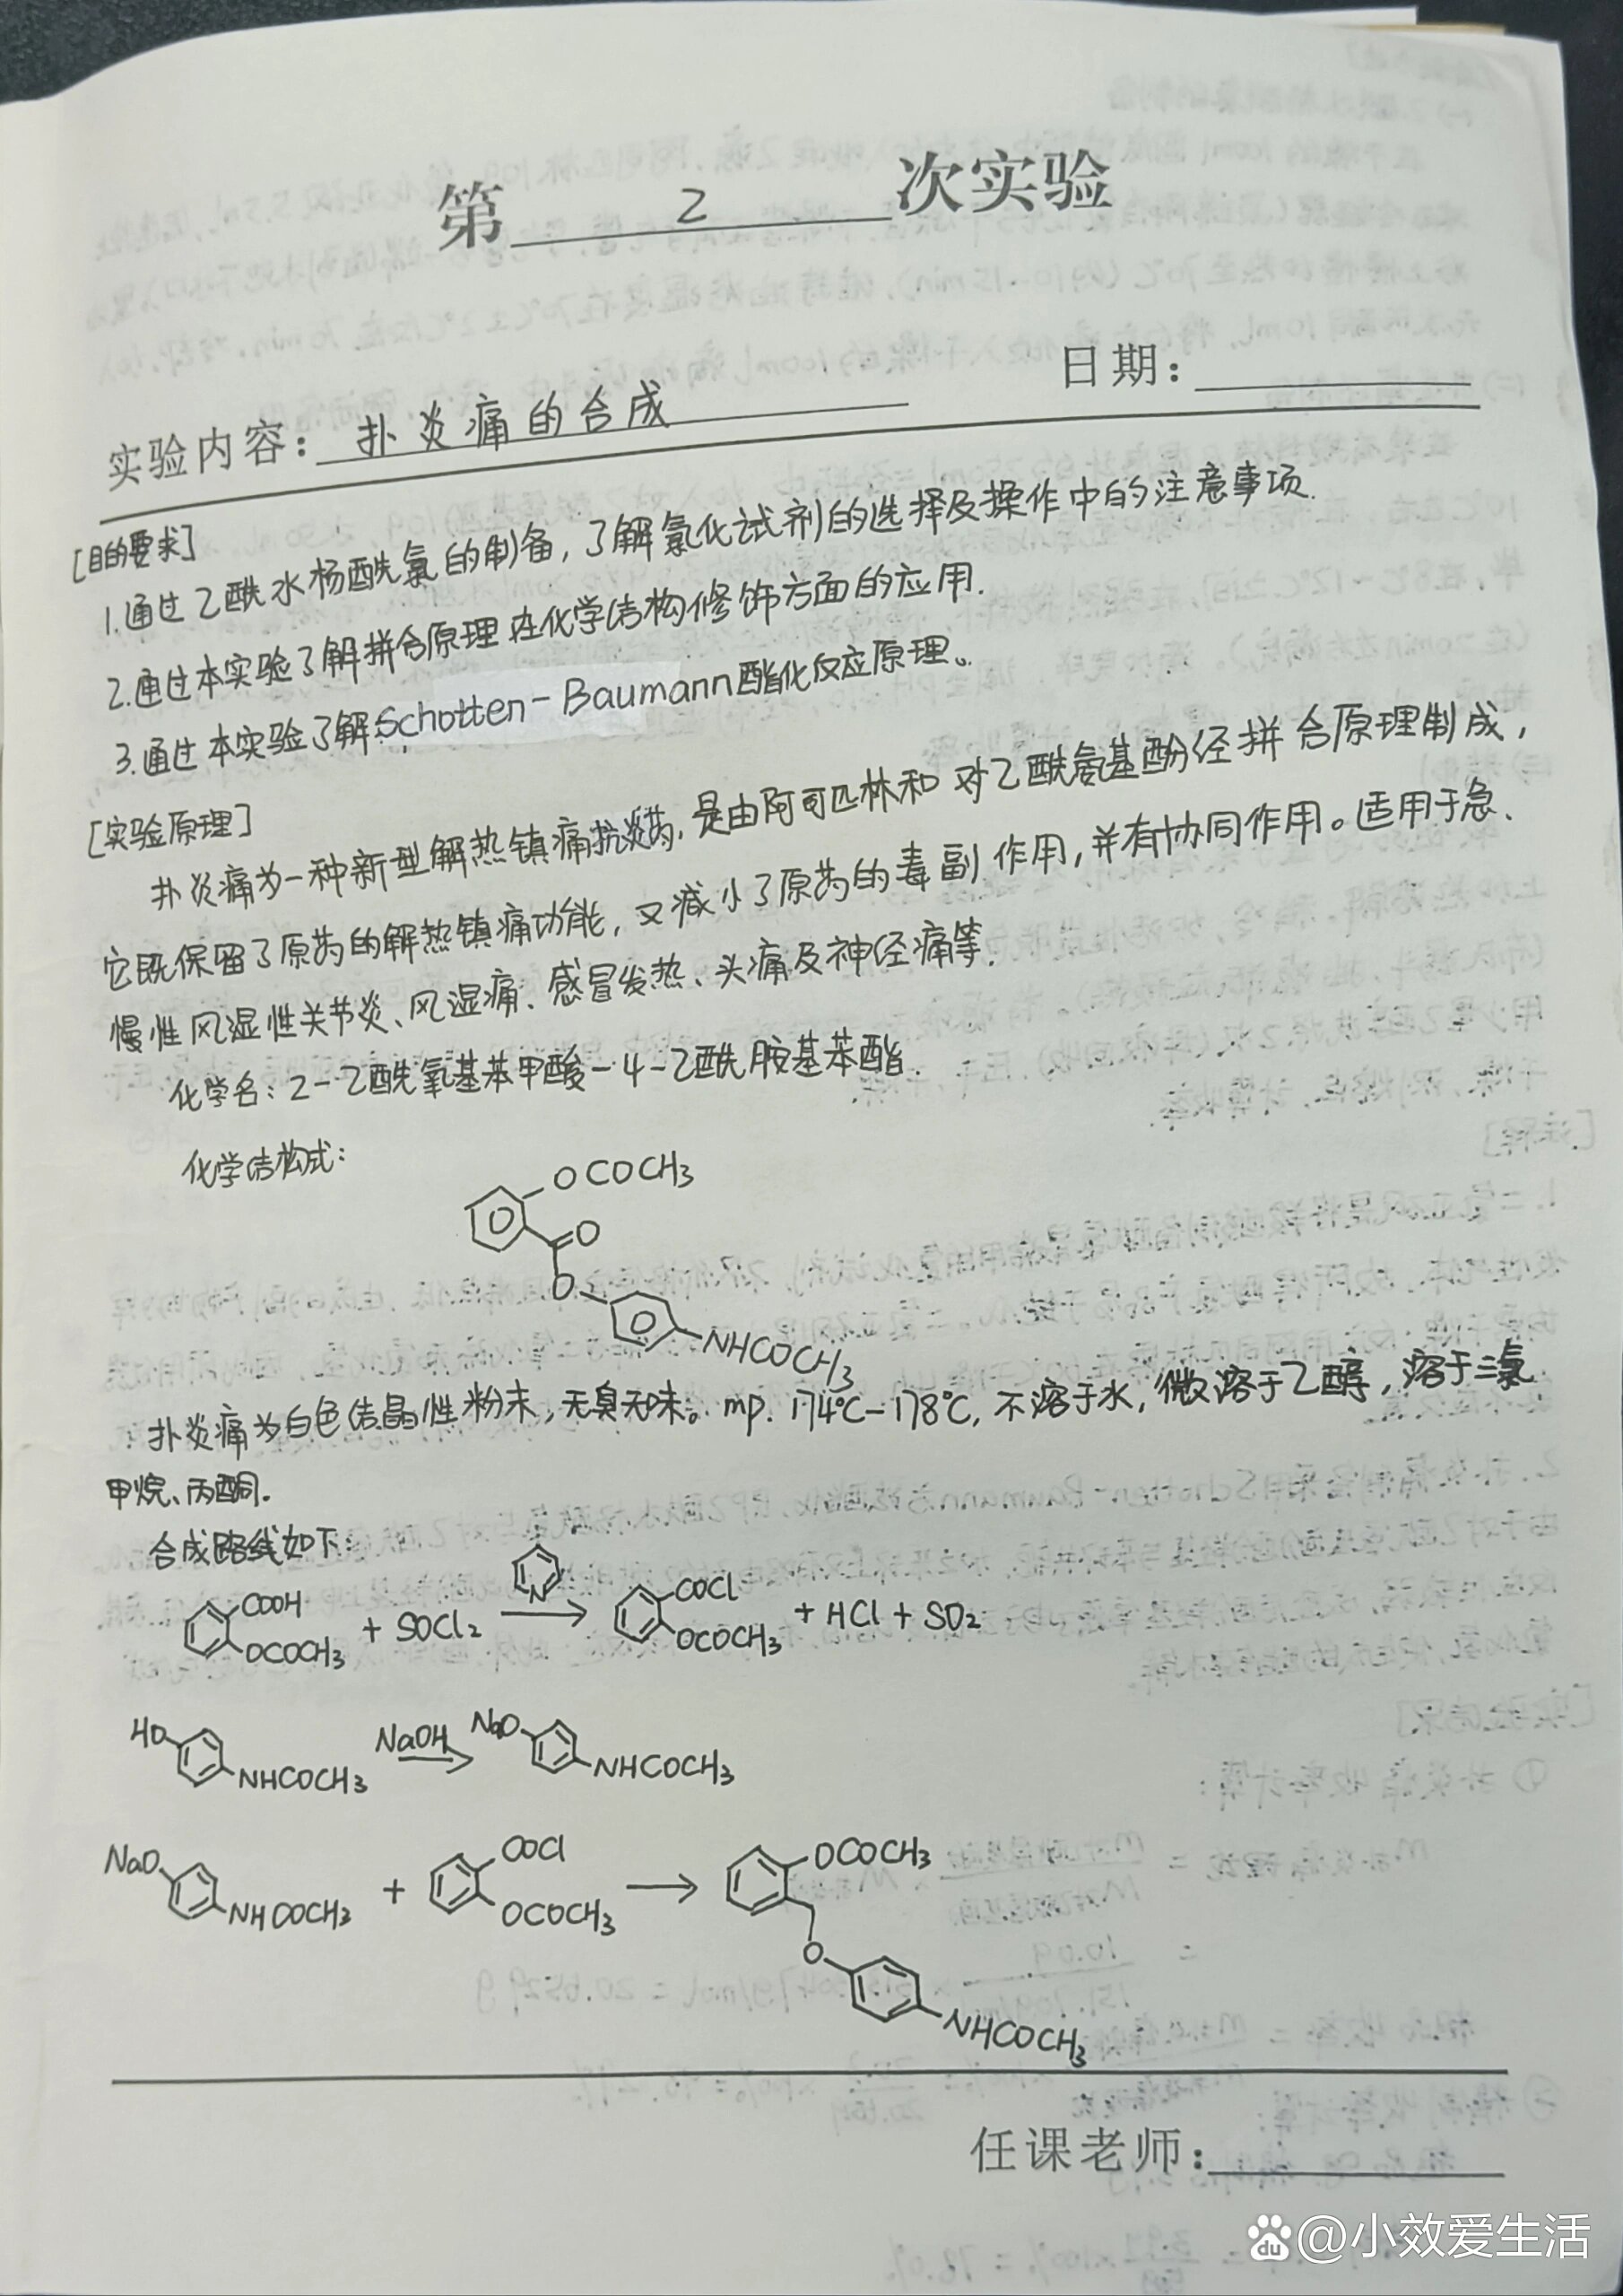 第 2 次实验
日期：
实验内容：扑炎痛的合成
[目的要求]
1.通过乙酰水杨酰氯的制备，了解氯化试剂的选择及操作中的注意事项.
2.通过本实验了解拼合原理在化学结构修饰方面的应用.
3.通过本实验了解Schotten-Baumann酯化反应原理。
[实验原理]
扑炎痛为一种新型解热镇痛抗炎药，是由阿司匹林和对乙酰氨基酚经拼合原理制成，
它既保留了原药的解热镇痛功能，又减小了原药的毒副作用，并有协同作用。适用于急、
慢性风湿性关节炎、风湿痛、感冒发热、头痛及神经痛等.
化学名：2-乙酰氧基苯甲酸-4-乙酰胺基苯酯.
化学结构式：
OCOCH3
O
O
NHCOCH3
扑炎痛为白色结晶性粉末，无臭无味。mp. 174℃-178℃, 不溶于水，微溶于乙醇，溶于三氯
甲烷、丙酮.
合成路线如下：
COOH OCOCH3 + SOCl2 N → COCl OCOCH3 + HCl + SO2
HO NHCOCH3 NaOH → NaO NHCOCH3
NaO NHCOCH3 + COCl OCOCH3 → OCOCH3
O
NHCOCH3
任课老师：
du @小效爱生活